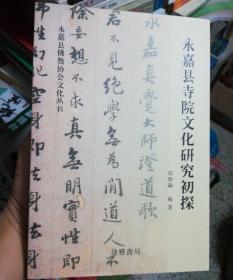 永嘉县寺院文化研究初探
编著
永嘉真覺大師證道歌
君不見絕學無為閒道人不
除妄想不求真無明實性即
布生幻化空身即法身
永嘉县佛教协会文化丛书
译雅書局